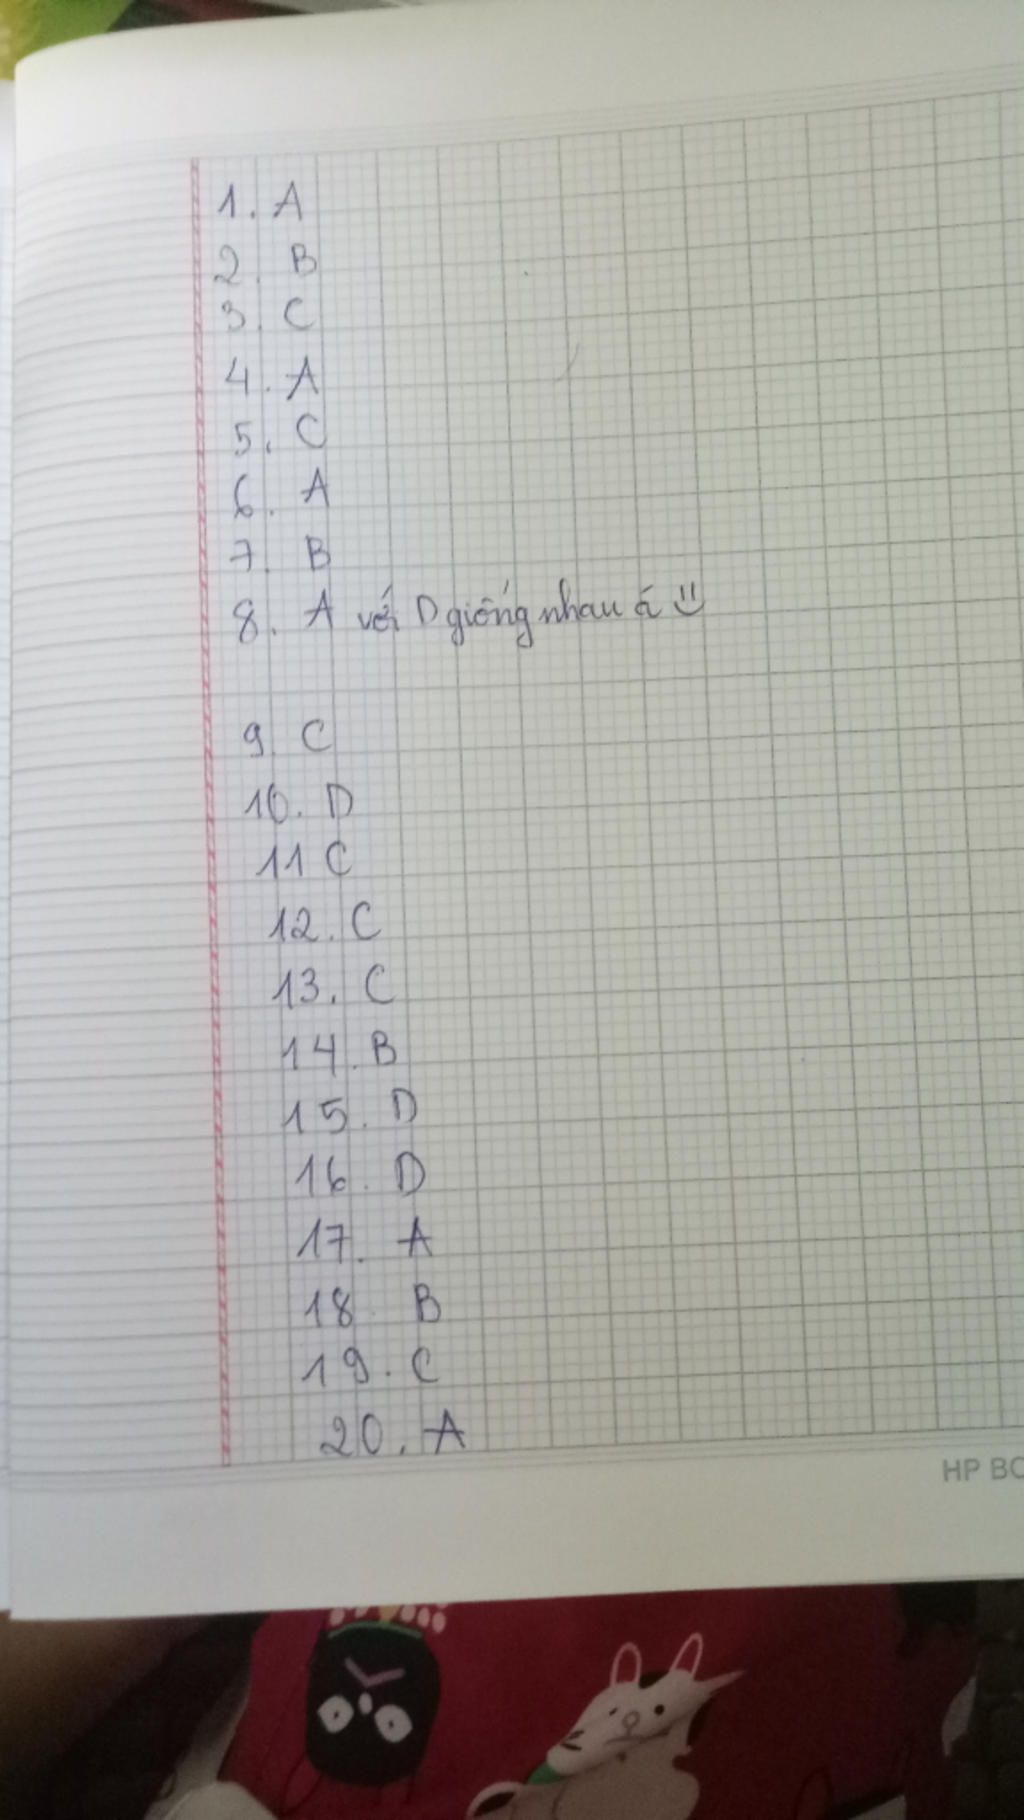 1. A
2. B
3. C
4. A
5. C
6. A
7. B
8. A với D giống nhau á
9. C
10. D
11 C
12. C
13. C
14. B
15. D
16. D
17. A
18 B
19. C
20. A
HP BO